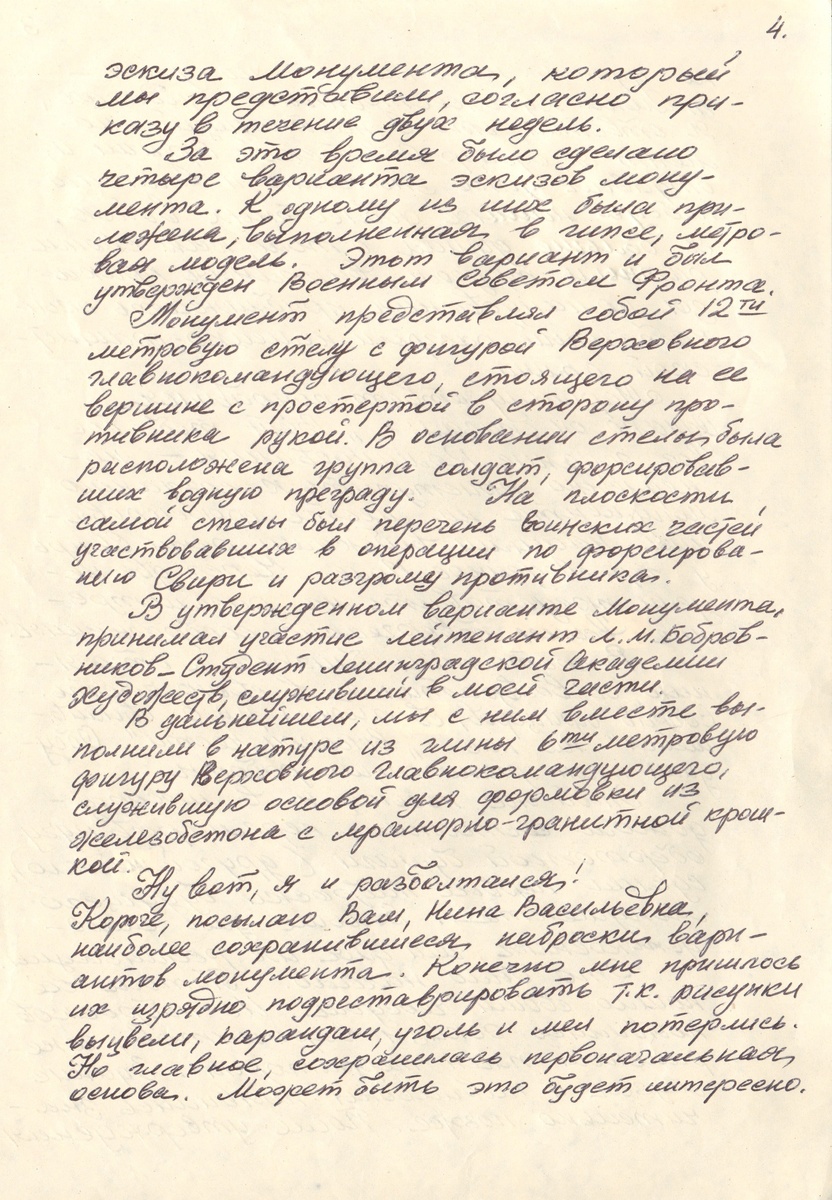 4.
эскиза Монумента, который
мы представили, согласно при-
казу в течение двух недель.
За это время было сделано
четыре варианта эскизов мону-
мента. К одному из них была при-
ложена, выполненная в гипсе, метро-
вая модель. Этот вариант и был
утвержден Военным Советом Фронта.
Монумент представлял собой 12ти
метровую стелу с фигурой Верховного
главнокомандующего, стоящего на ее
вершине с простертой в сторону про-
тивника рукой. В основании стелы была
расположена группа солдат, форсировав-
ших водную преграду. На плоскости
самой стелы был перечень воинских частей
участвовавших в операции по форсирова-
нию Свири и разгрому противника.
В утвержденном варианте Монумента,
принимал участие лейтенант Л.М. Бобров-
ников – Студент Ленинградской Академии
Художеств, служивший в моей части.
В дальнейшем, мы с ним вместе вы-
полнили в натуре из глины 6ти метровую
фигуру Верховного Главнокомандующего,
служившую основой для формовки из
железобетона с мраморно-гранитной крош-
кой.
Ну вот, я и разболтался!
Короче, посылаю Вам, Нина Васильевна,
наиболее сохранившиеся наброски вари-
антов монумента. Конечно мне пришлось
их изрядно подреставрировать т.к. рисунки
выцвели, карандаш, уголь и мел потерлись.
Но главное, сохранилась первоначальная
основа. Может быть это будет интересно.